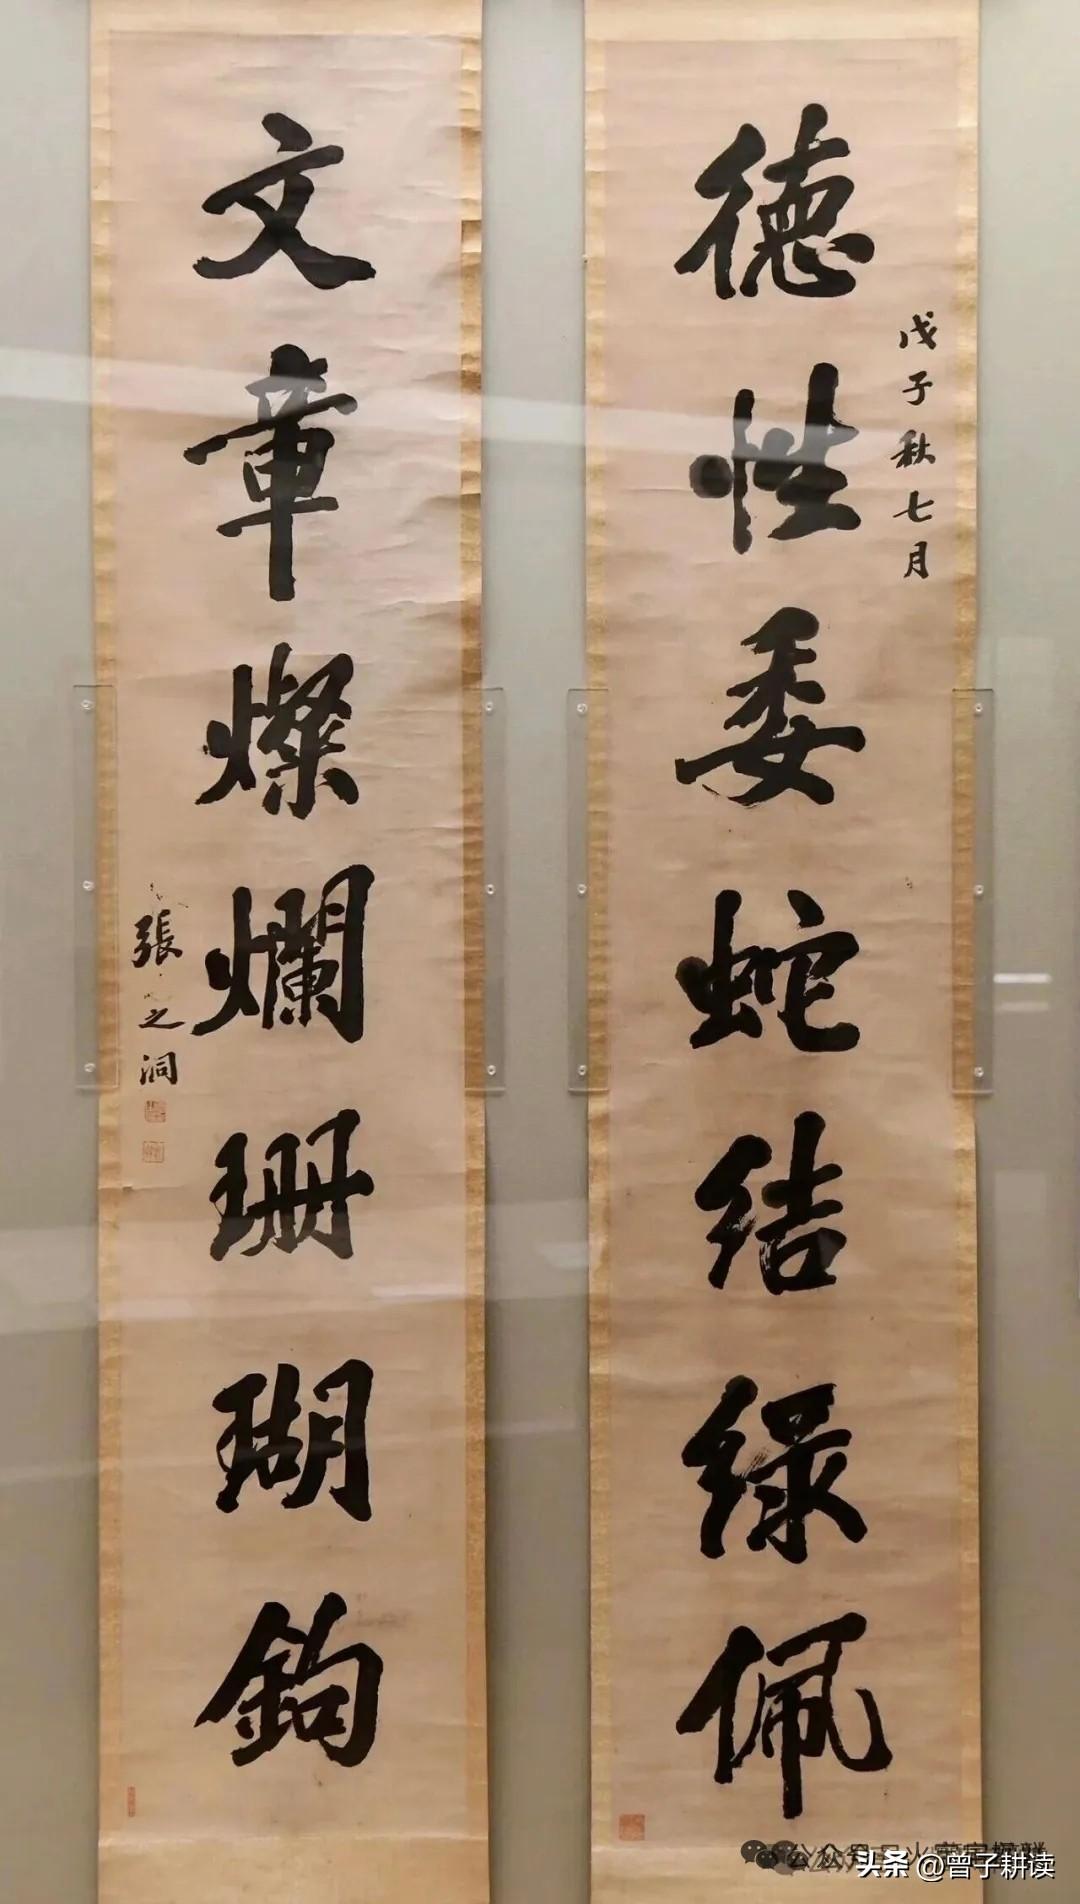 戊子秋七月
德性委蛇结绿佩
文章燦爛珊瑚鉤
張之洞
头条 @曾子耕读